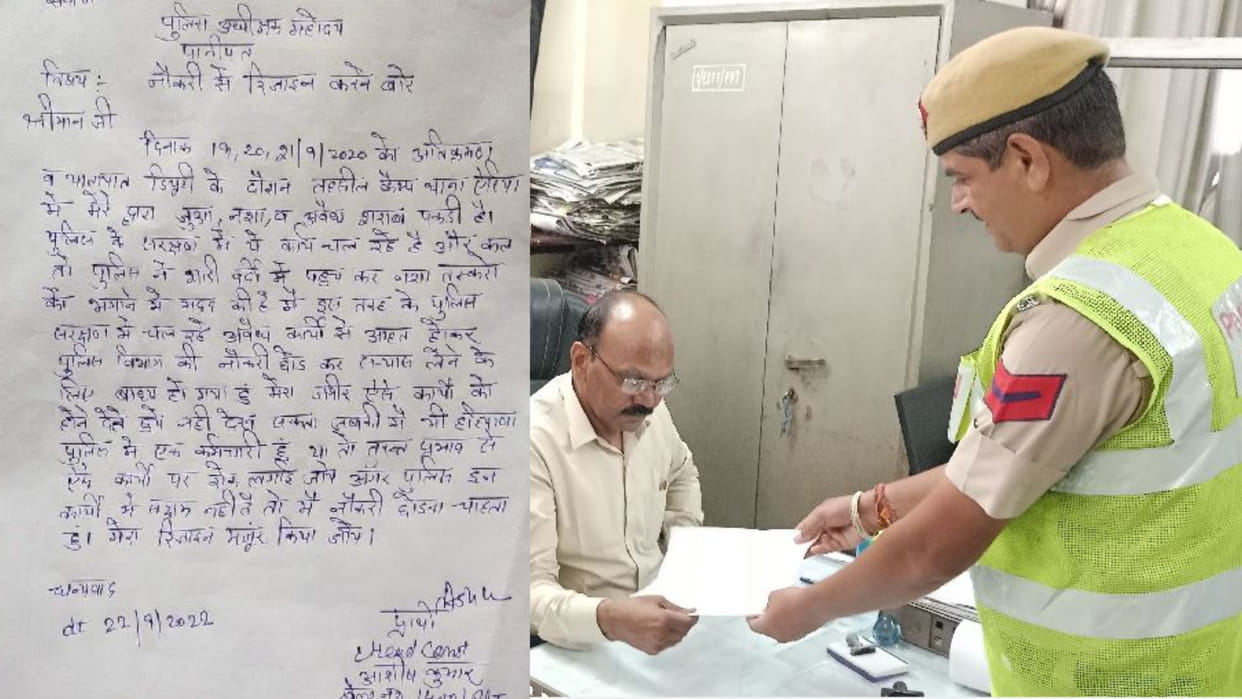 पुलिस अधीक्षक महोदय
पानीपत
विषय :- नौकरी से रिजाइन करने बारे
श्रीमान जी
दिनांक 19, 20, 21/9/2020 को अतिक्रमण
व यातायात डियुटी के दौरान तहसील कैम्प थाना ऐरिया
में मेरे द्वारा जुआ, नशा, व अवैध शराब पकडी है।
पुलिस के सरक्षण में ये कार्य चल रहे है और कल
तो पुलिस ने सादी वर्दी में पहुच कर नशा तस्करो
को भगाने में मदद की है मैं इस तरह के पुलिस
सरक्षण में चल रहे अवैध कार्यो से आहत होकर
पुलिस विभाग की नौकरी छोड कर सन्यास लेने के
लिए बाध्य हो गया हुं मेरा जमीर ऐसे कार्यो को
होते हुये नही देख सकता जबकी मैं भी हरियाणा
पुलिस मे एक कर्मचारी हूं या तो तुरन्त प्रभाव से
ऐसे कार्यो पर रोक लगाई जाये अगर पुलिस इन
कार्यो में सक्षम नही है तो मैं नौकरी छोडना चाहता
हुं। मेरा रिजाइन मंजूर किया जाये।
धन्यवाद
dt 22/9/2022
प्रार्थी
Head Const
आशीष कुमार